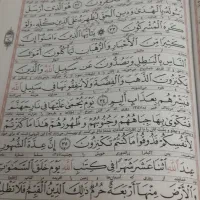 هُوَ الَّذِي أَرْسَلَ
بِالْهُدَىٰ وَدِينِ الْحَقِّ لِيُظْهِرَهُ عَلَى الدِّينِ
كَرِهَ الْمُشْرِكُونَ ﴿٣٣﴾ يَا أَيُّهَا الَّذِينَ
كَثِيرًا مِنَ الْأَحْبَارِ وَالرُّهْبَانِ لَيَأْكُلُونَ أَمْوَالَ
النَّاسِ بِالْبَاطِلِ وَيَصُدُّونَ عَنْ سَبِيلِ اللَّهِ وَالَّذِينَ
يَكْنِزُونَ الذَّهَبَ وَالْفِضَّةَ وَلَا يُنْفِقُونَهَا فِي سَبِيلِ اللَّهِ
فَبَشِّرْهُمْ بِعَذَابٍ أَلِيمٍ ﴿٣٤﴾ يَوْمَ يُحْمَىٰ عَلَيْهَا فِي نَارِ جَهَنَّمَ
فَتُكْوَىٰ بِهَا جِبَاهُهُمْ وَجُنُوبُهُمْ وَظُهُورُهُمْ هَٰذَا مَا كَنَزْتُمْ
لِأَنْفُسِكُمْ فَذُوقُوا مَا كُنْتُمْ تَكْنِزُونَ ﴿٣٥﴾ إِنَّ عِدَّةَ الشُّهُورِ
عِنْدَ اللَّهِ اثْنَا عَشَرَ شَهْرًا فِي كِتَابِ اللَّهِ يَوْمَ خَلَقَ السَّمَٰوَاتِ
وَالْأَرْضَ مِنْهَا أَرْبَعَةٌ حُرُمٌ ذَٰلِكَ الدِّينُ الْقَيِّمُ فَلَا تَظْلِمُوا